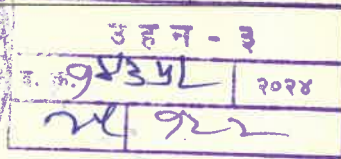 उहन - ३
द. क्र. १४३५८ २०२४
२५ १२२